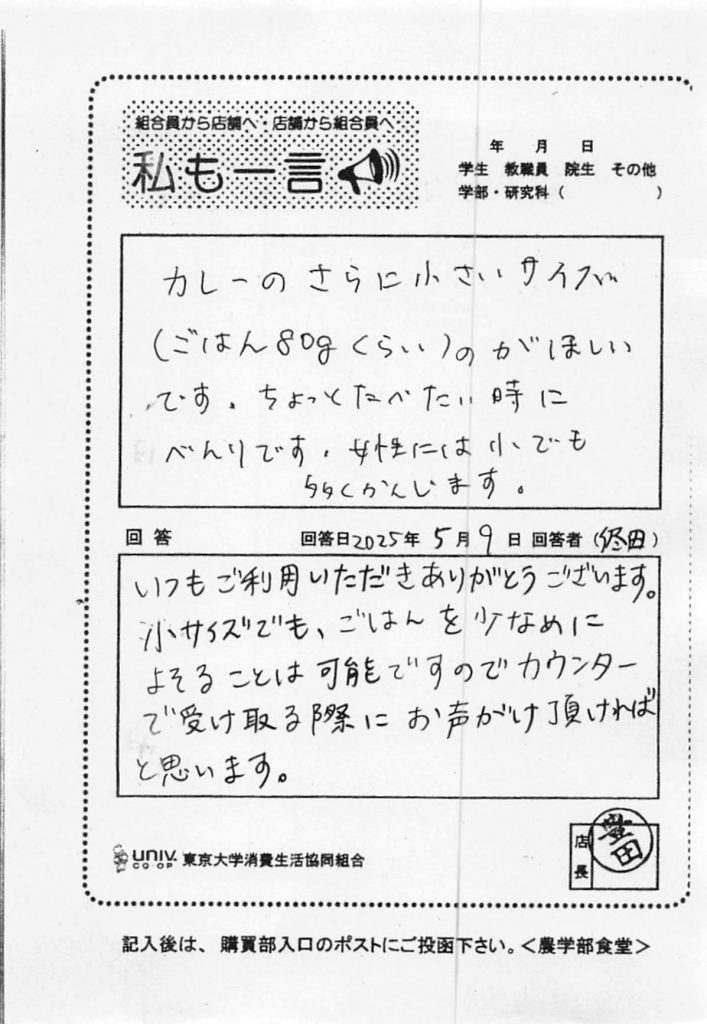 組合員から店舗へ・店舗から組合員へ
私も一言
年 月 日
学生 教職員 院生 その他
学部・研究科( )
カレーの さらに小さいサイズ
(ごはん80gくらい)の がほしい
です。ちょっとたべたい時に
べんりです。女性には小でも
多くかんじます。
回答 回答日2025年 5月9日 回答者(田)
いつもご利用いただきありがとうございます。
小サイズでも、ごはんを少なめに
よそることは可能ですのでカウンター
で受け取る際に お声がけ頂ければ
と思います。
店長 豊田
UNIV. CO-OP 東京大学消費生活協同組合
記入後は、購買部入口のポストにご投函下さい。<農学部食堂>